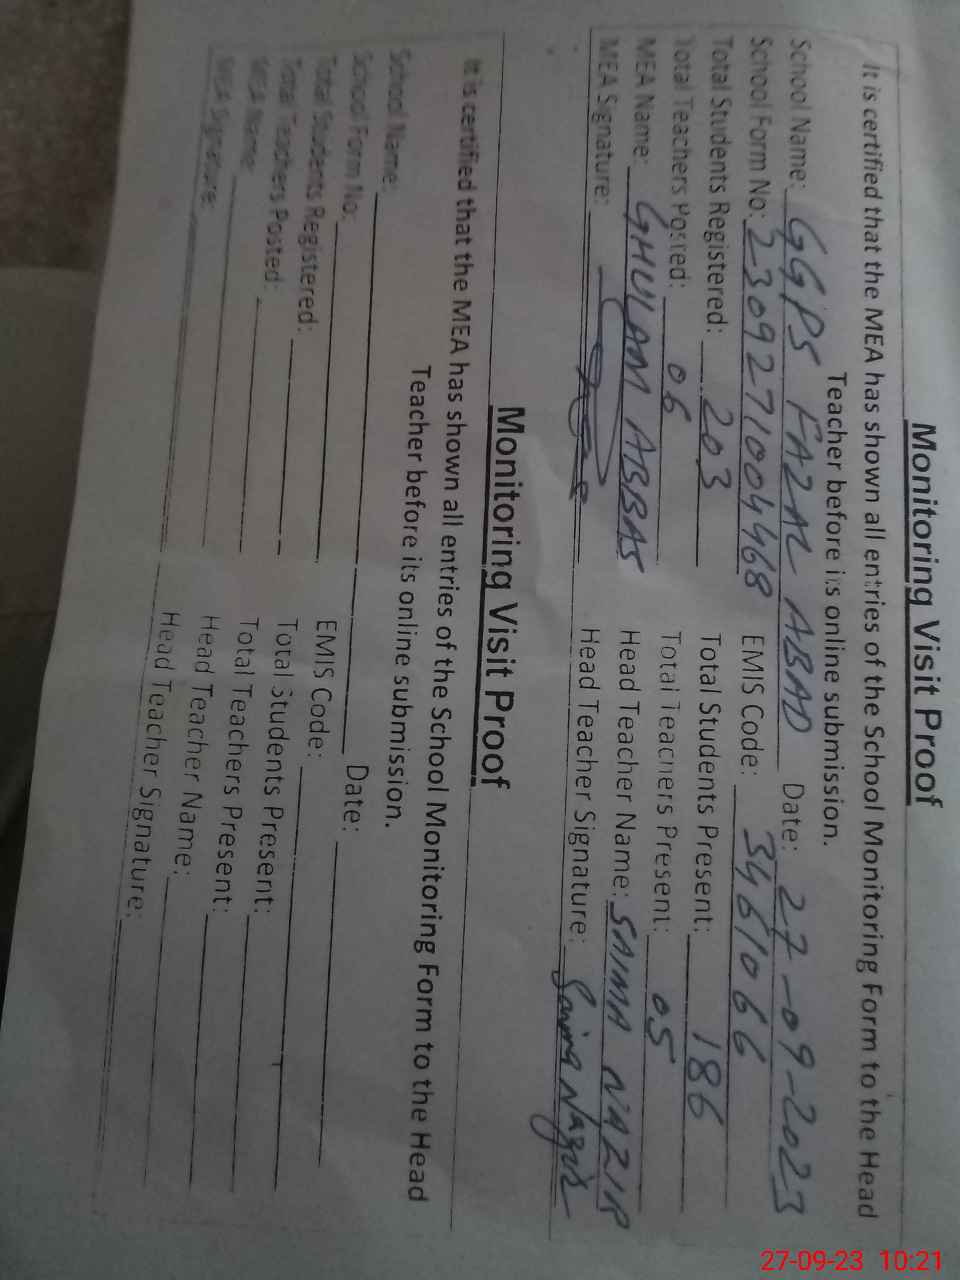 Monitoring Visit Proof
It is certified that the MEA has shown all entries of the School Monitoring Form to the Head
Teacher before its online submission.
School Name: GGPS FAZAL ABAD Date: 27-09-2023
School Form No: 2309271004468 EMIS Code: 3461066
Total Students Registered: 203 Total Students Present: 186
Total Teachers Posted: 06 Total Teachers Present: 05
MEA Name: GHULAM ABBAS Head Teacher Name: SAIMA NAZIR
MEA Signature: Head Teacher Signature: Saima Nazir
Monitoring Visit Proof
It is certified that the MEA has shown all entries of the School Monitoring Form to the Head
Teacher before its online submission.
School Name: Date:
School Form No: EMIS Code:
Total Students Registered: Total Students Present:
Total Teachers Posted: Total Teachers Present:
MEA Name: Head Teacher Name:
MEA Signature: Head Teacher Signature:
27-09-23 10:21